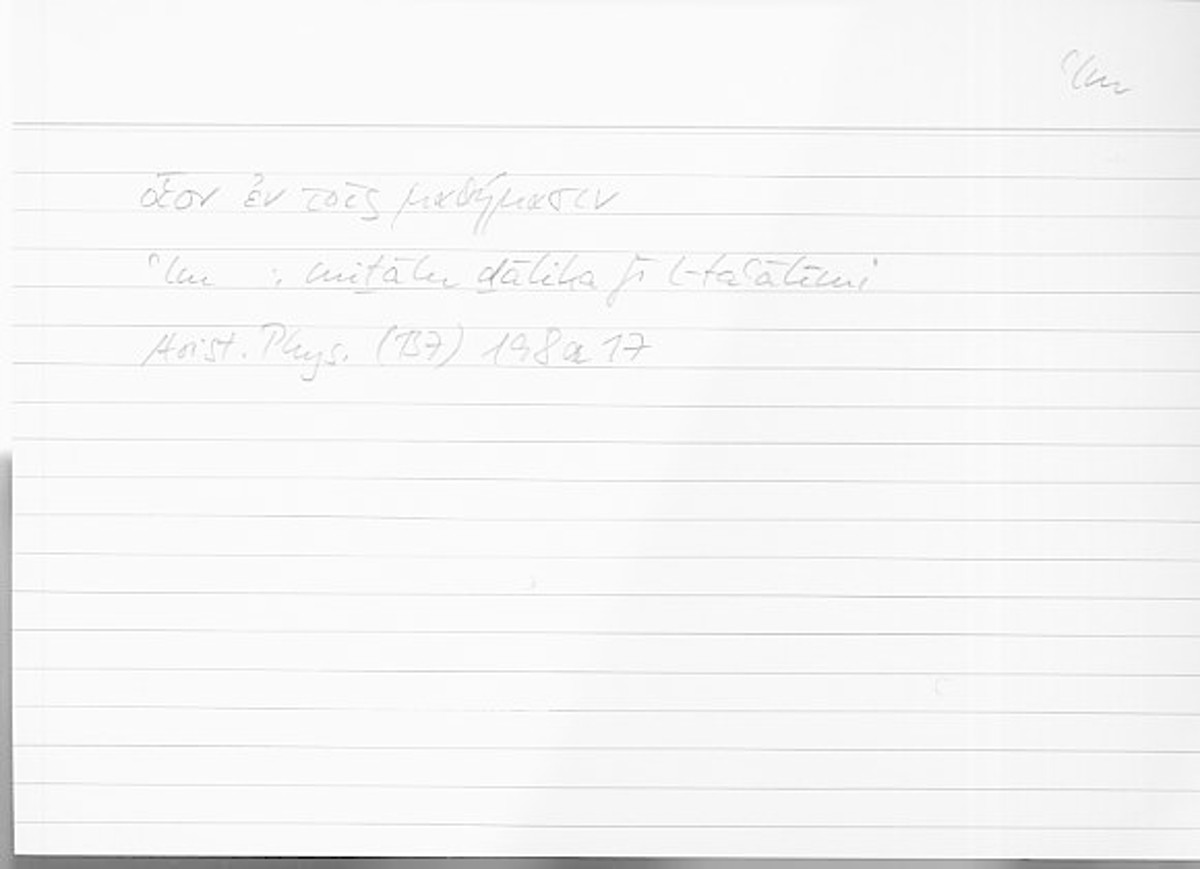 ʿlm
οἷον ἐν τοῖς μαθήμασιν
ʿlm : miṯālu ḏālika fī l-taʿālīmi
Arist. Phys. (B7) 198a17